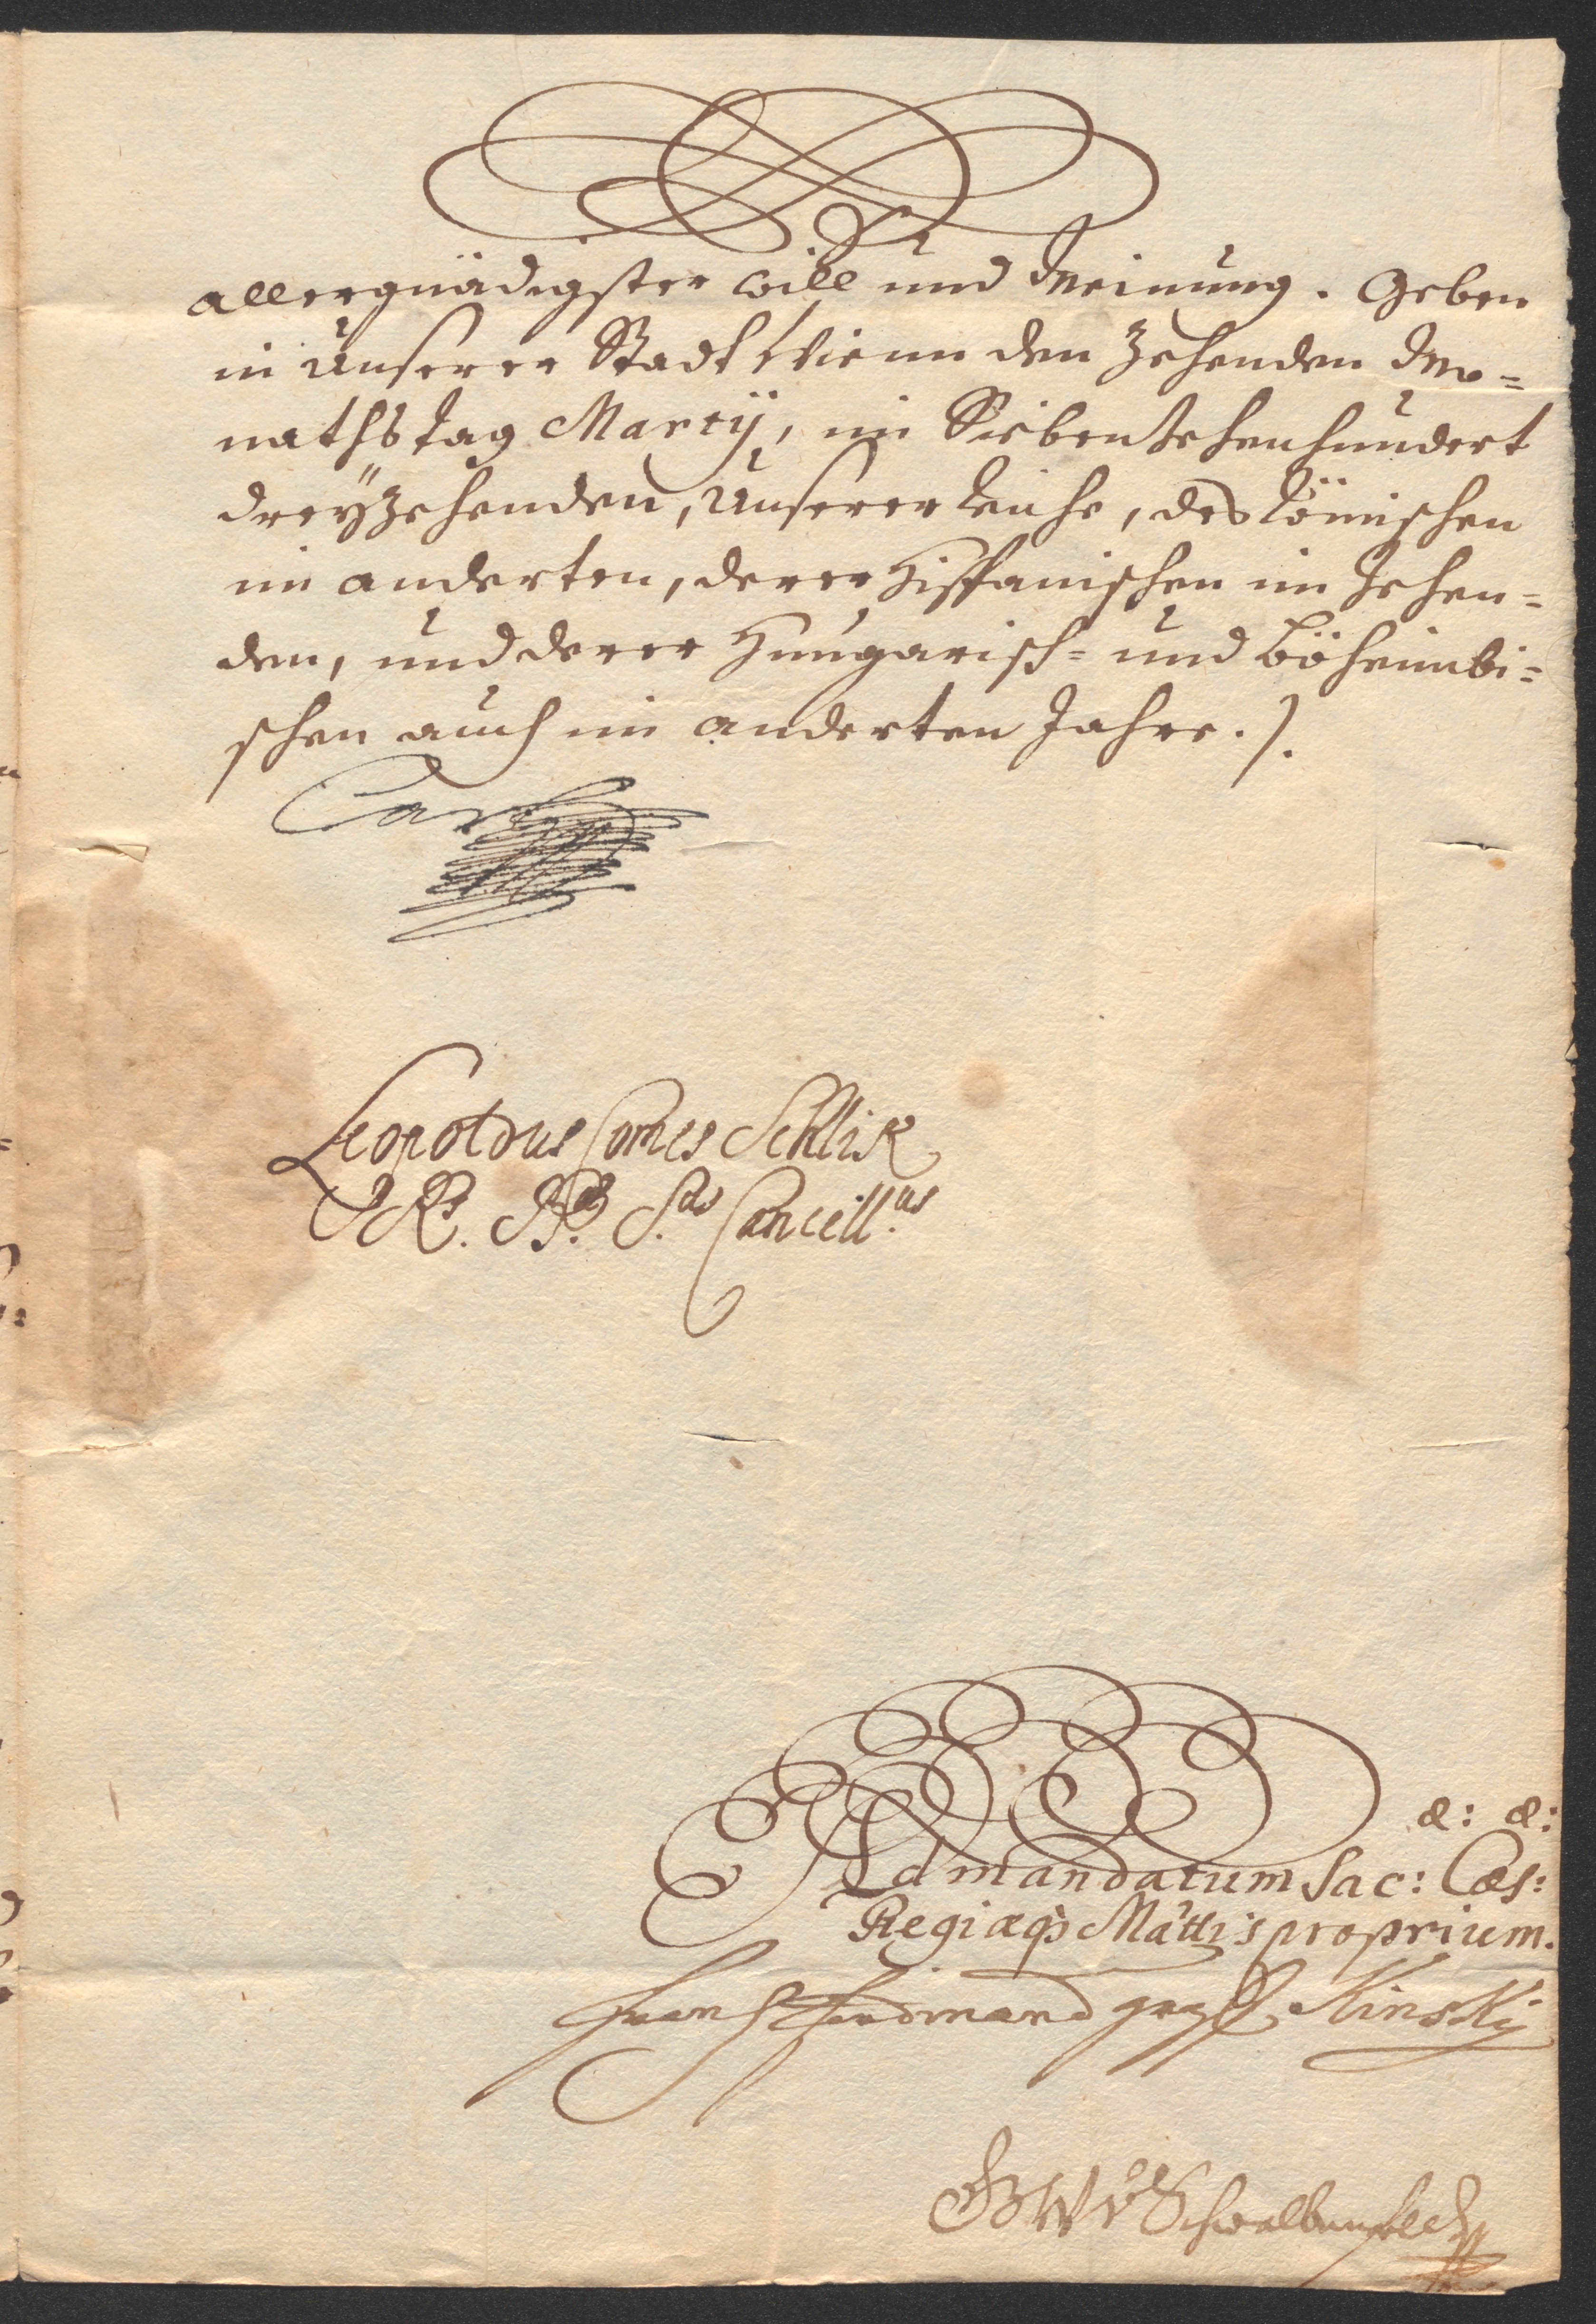 allergnädigster will und Meinung. Geben
in Unserer Stadt Wienn den Zehenden Mo=
nathstag Martij, im Siebenzehenhundert
dreÿzehenden, Unserer Reiche, des Römischen
im anderten, derer Hispanischen im Zehen=
den, und derer Hungarisch= und Böheimbi=
schen auch im anderten Jahre.
Carl
Leopoldus Comes Schlik
Rs. Bae. S.us Cancell.us
æ: æ:
Ad mandatum Sac: Cæs:
Regiæq3 Mättis proprium.
Franz Ferdinand graff Kinsky
GWv Schwalbenfeld